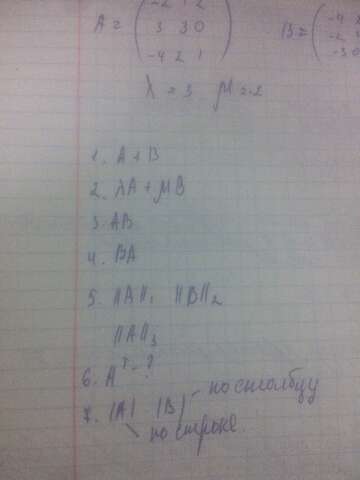 A = ( -2 1 2
3 3 0
-4 2 1 )
B = ( -4
-2
-3 0
λ = 3 μ = -2
1. A + B
2. λA + μB
3. AB
4. BA
5. ||A||₁ ||B||₂
||A||₃
6. Aᵀ - ?
7. |A| |B| - по столбцу
по строке